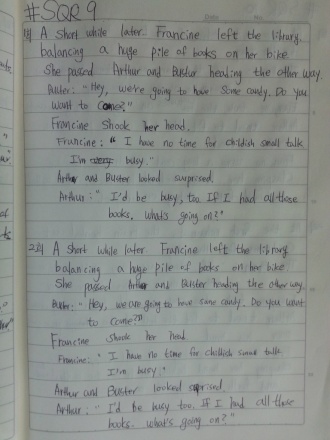 #SQR 9
1회 A short while later Francine left the library
balancing a huge pile of books on her bike
She passed Arthur and Buster heading the other way.
Buster: "Hey, we're going to have some candy. Do you
want to come?"
Francine shook her head.
Francine: "I have no time for childish small talk
I'm busy."
Arthur and Buster looked surprised.
Arthur: "I'd be busy, too. If I had all those
books. what's going on?"
2회 A short while later Francine left the library
balancing a huge pile of books on her bike.
She passed Arthur and Buster heading the other way.
Buster: "Hey, we are going to have some candy. Do you want
to come?"
Francine shook her head
Francine: "I have no time for childish small talk
I'm busy."
Arthur and Buster looked
Arthur: "I'd be busy too. If I had all those
books. what's going on?"